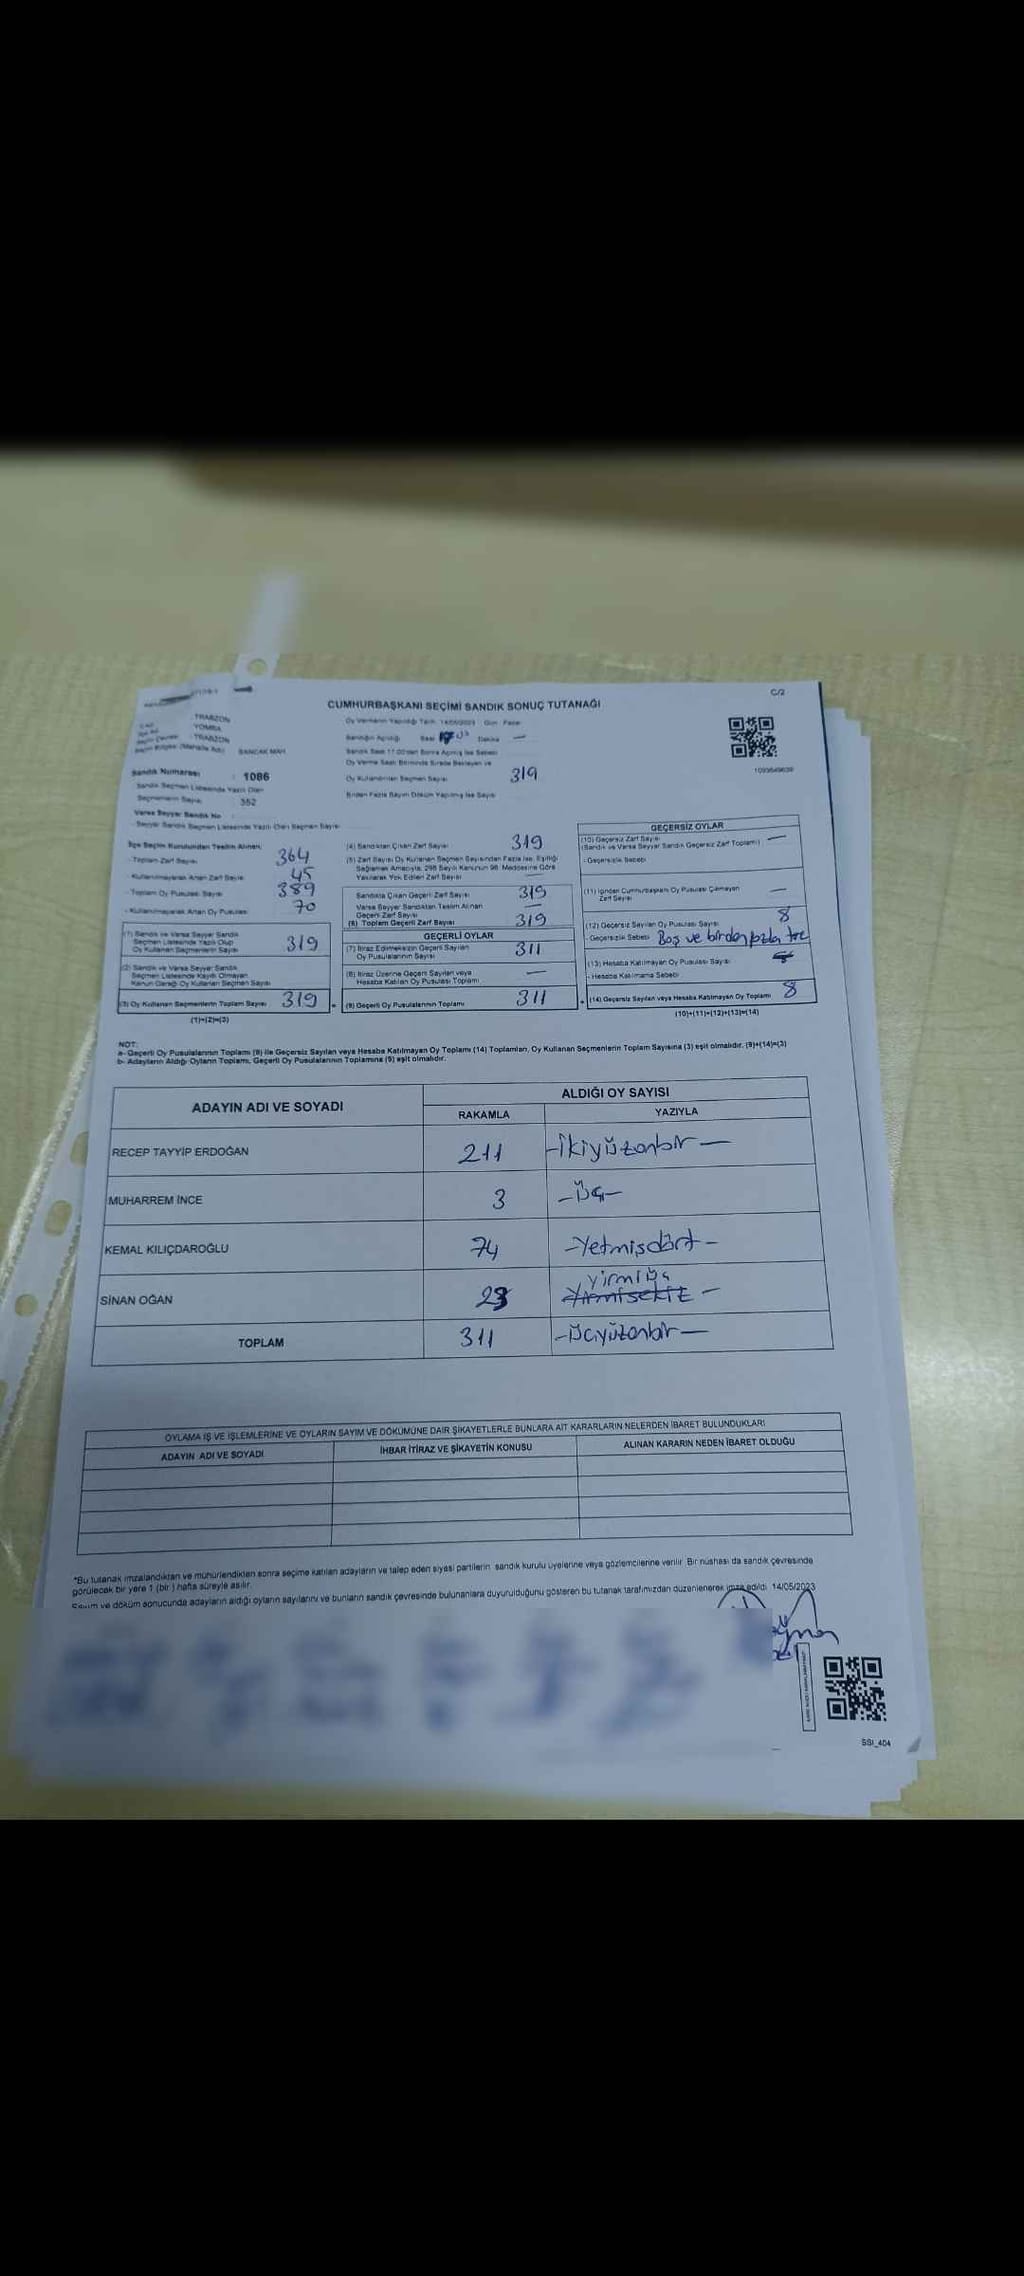 C/2
CUMHURBAŞKANI SEÇİMİ SANDIK SONUÇ TUTANAĞI
TRABZON
YOMRA
TRABZON
SANCAK MAH.
Sandık Numarası : 1086
Sandık Seçmen Listesinde Yazılı Olan
Seçmenlerin Sayısı 352
Varsa Seyyar Sandık No
- Seyyar Sandık Seçmen Listesinde Yazılı Olan Seçmen Sayısı
Oy Vermenin Yapıldığı Tarih: 14/05/2023 Gün: Pazar
Sandığın Açıldığı Saat Dakika —
Sandık Saat 17.00'den Sonra Açılmış İse Sebebi
Oy Verme Saati Bitiminde Sırada Bekleyen ve
Oy Kullandırılan Seçmen Sayısı 319
Birden Fazla Sayım Döküm Yapılmış İse Sayısı
1093649639
İlçe Seçim Kurulundan Teslim Alınan;
- Toplam Zarf Sayısı 364
- Kullanılmayarak Artan Zarf Sayısı 45
- Toplam Oy Pusulası Sayısı 389
- Kullanılmayarak Artan Oy Pusulası 70
(1) Sandık ve Varsa Seyyar Sandık
Seçmen Listesinde Yazılı Olup
Oy Kullanan Seçmenlerin Sayısı 319
(2) Sandık ve Varsa Seyyar Sandık
Seçmen Listesinde Kayıtlı Olmayan
Kanun Gereği Oy Kullanan Seçmen Sayısı
(3) Oy Kullanan Seçmenlerin Toplam Sayısı 319
(1)+(2)=(3)
(4) Sandıktan Çıkan Zarf Sayısı 319
(5) Zarf Sayısı Oy Kullanan Seçmen Sayısından Fazla İse, Eşitliği
Sağlamak Amacıyla, 298 Sayılı Kanunun 98. Maddesine Göre
Yakılarak Yok Edilen Zarf Sayısı —
Sandıkta Çıkan Geçerli Zarf Sayısı 319
Varsa Seyyar Sandıktan Teslim Alınan
Geçerli Zarf Sayısı —
(6) Toplam Geçerli Zarf Sayısı 319
GEÇERLİ OYLAR
(7) İtiraz Edilmeksizin Geçerli Sayılan
Oy Pusulalarının Sayısı 311
(8) İtiraz Üzerine Geçerli Sayılan veya
Hesaba Katılan Oy Pusulası Toplamı —
(9) Geçerli Oy Pusulalarının Toplamı 311
GEÇERSİZ OYLAR
(10) Geçersiz Zarf Sayısı
(Sandık ve Varsa Seyyar Sandık Geçersiz Zarf Toplamı) —
- Geçersizlik Sebebi
(11) İçinden Cumhurbaşkanı Oy Pusulası Çıkmayan
Zarf Sayısı —
(12) Geçersiz Sayılan Oy Pusulası Sayısı 8
- Geçersizlik Sebebi Boş ve birden fazla
(13) Hesaba Katılmayan Oy Pusulası Sayısı
- Hesaba Katılmama Sebebi
(14) Geçersiz Sayılan veya Hesaba Katılmayan Oy Toplamı 8
(10)+(11)+(12)+(13)=(14)
NOT:
a- Geçerli Oy Pusulalarının Toplamı (9) ile Geçersiz Sayılan veya Hesaba Katılmayan Oy Toplamı (14) Toplamları, Oy Kullanan Seçmenlerin Toplam Sayısına (3) eşit olmalıdır. (9)+(14)=(3)
b- Adayların Aldığı Oyların Toplamı, Geçerli Oy Pusulalarının Toplamına (9) eşit olmalıdır.
ADAYIN ADI VE SOYADI
ALDIĞI OY SAYISI
RAKAMLA YAZIYLA
RECEP TAYYİP ERDOĞAN 211 -İkiyüzonbir—
MUHARREM İNCE 3 -Üç-
KEMAL KILIÇDAROĞLU 74 -Yetmişdört-
SİNAN OĞAN 23 yirmiüç Yirmisekiz -
TOPLAM 311 -Üçyüzonbir—
OYLAMA İŞ VE İŞLEMLERİNE VE OYLARIN SAYIM VE DÖKÜMÜNE DAİR ŞİKAYETLERLE BUNLARA AİT KARARLARIN NELERDEN İBARET BULUNDUKLARI
ADAYIN ADI VE SOYADI İHBAR İTİRAZ VE ŞİKAYETİN KONUSU ALINAN KARARIN NEDEN İBARET OLDUĞU
*Bu tutanak imzalandıktan ve mühürlendikten sonra seçime katılan adayların ve talep eden siyasi partilerin sandık kurulu üyelerine veya gözlemcilerine verilir. Bir nüshası da sandık çevresinde
görülecek bir yere 1 (bir) hafta süreyle asılır.
Sayım ve döküm sonucunda adayların aldığı oyların sayılarını ve bunların sandık çevresinde bulunanlara duyurulduğunu gösteren bu tutanak tarafımızdan düzenlenerek imza edildi. 14/05/2023
SSI_404